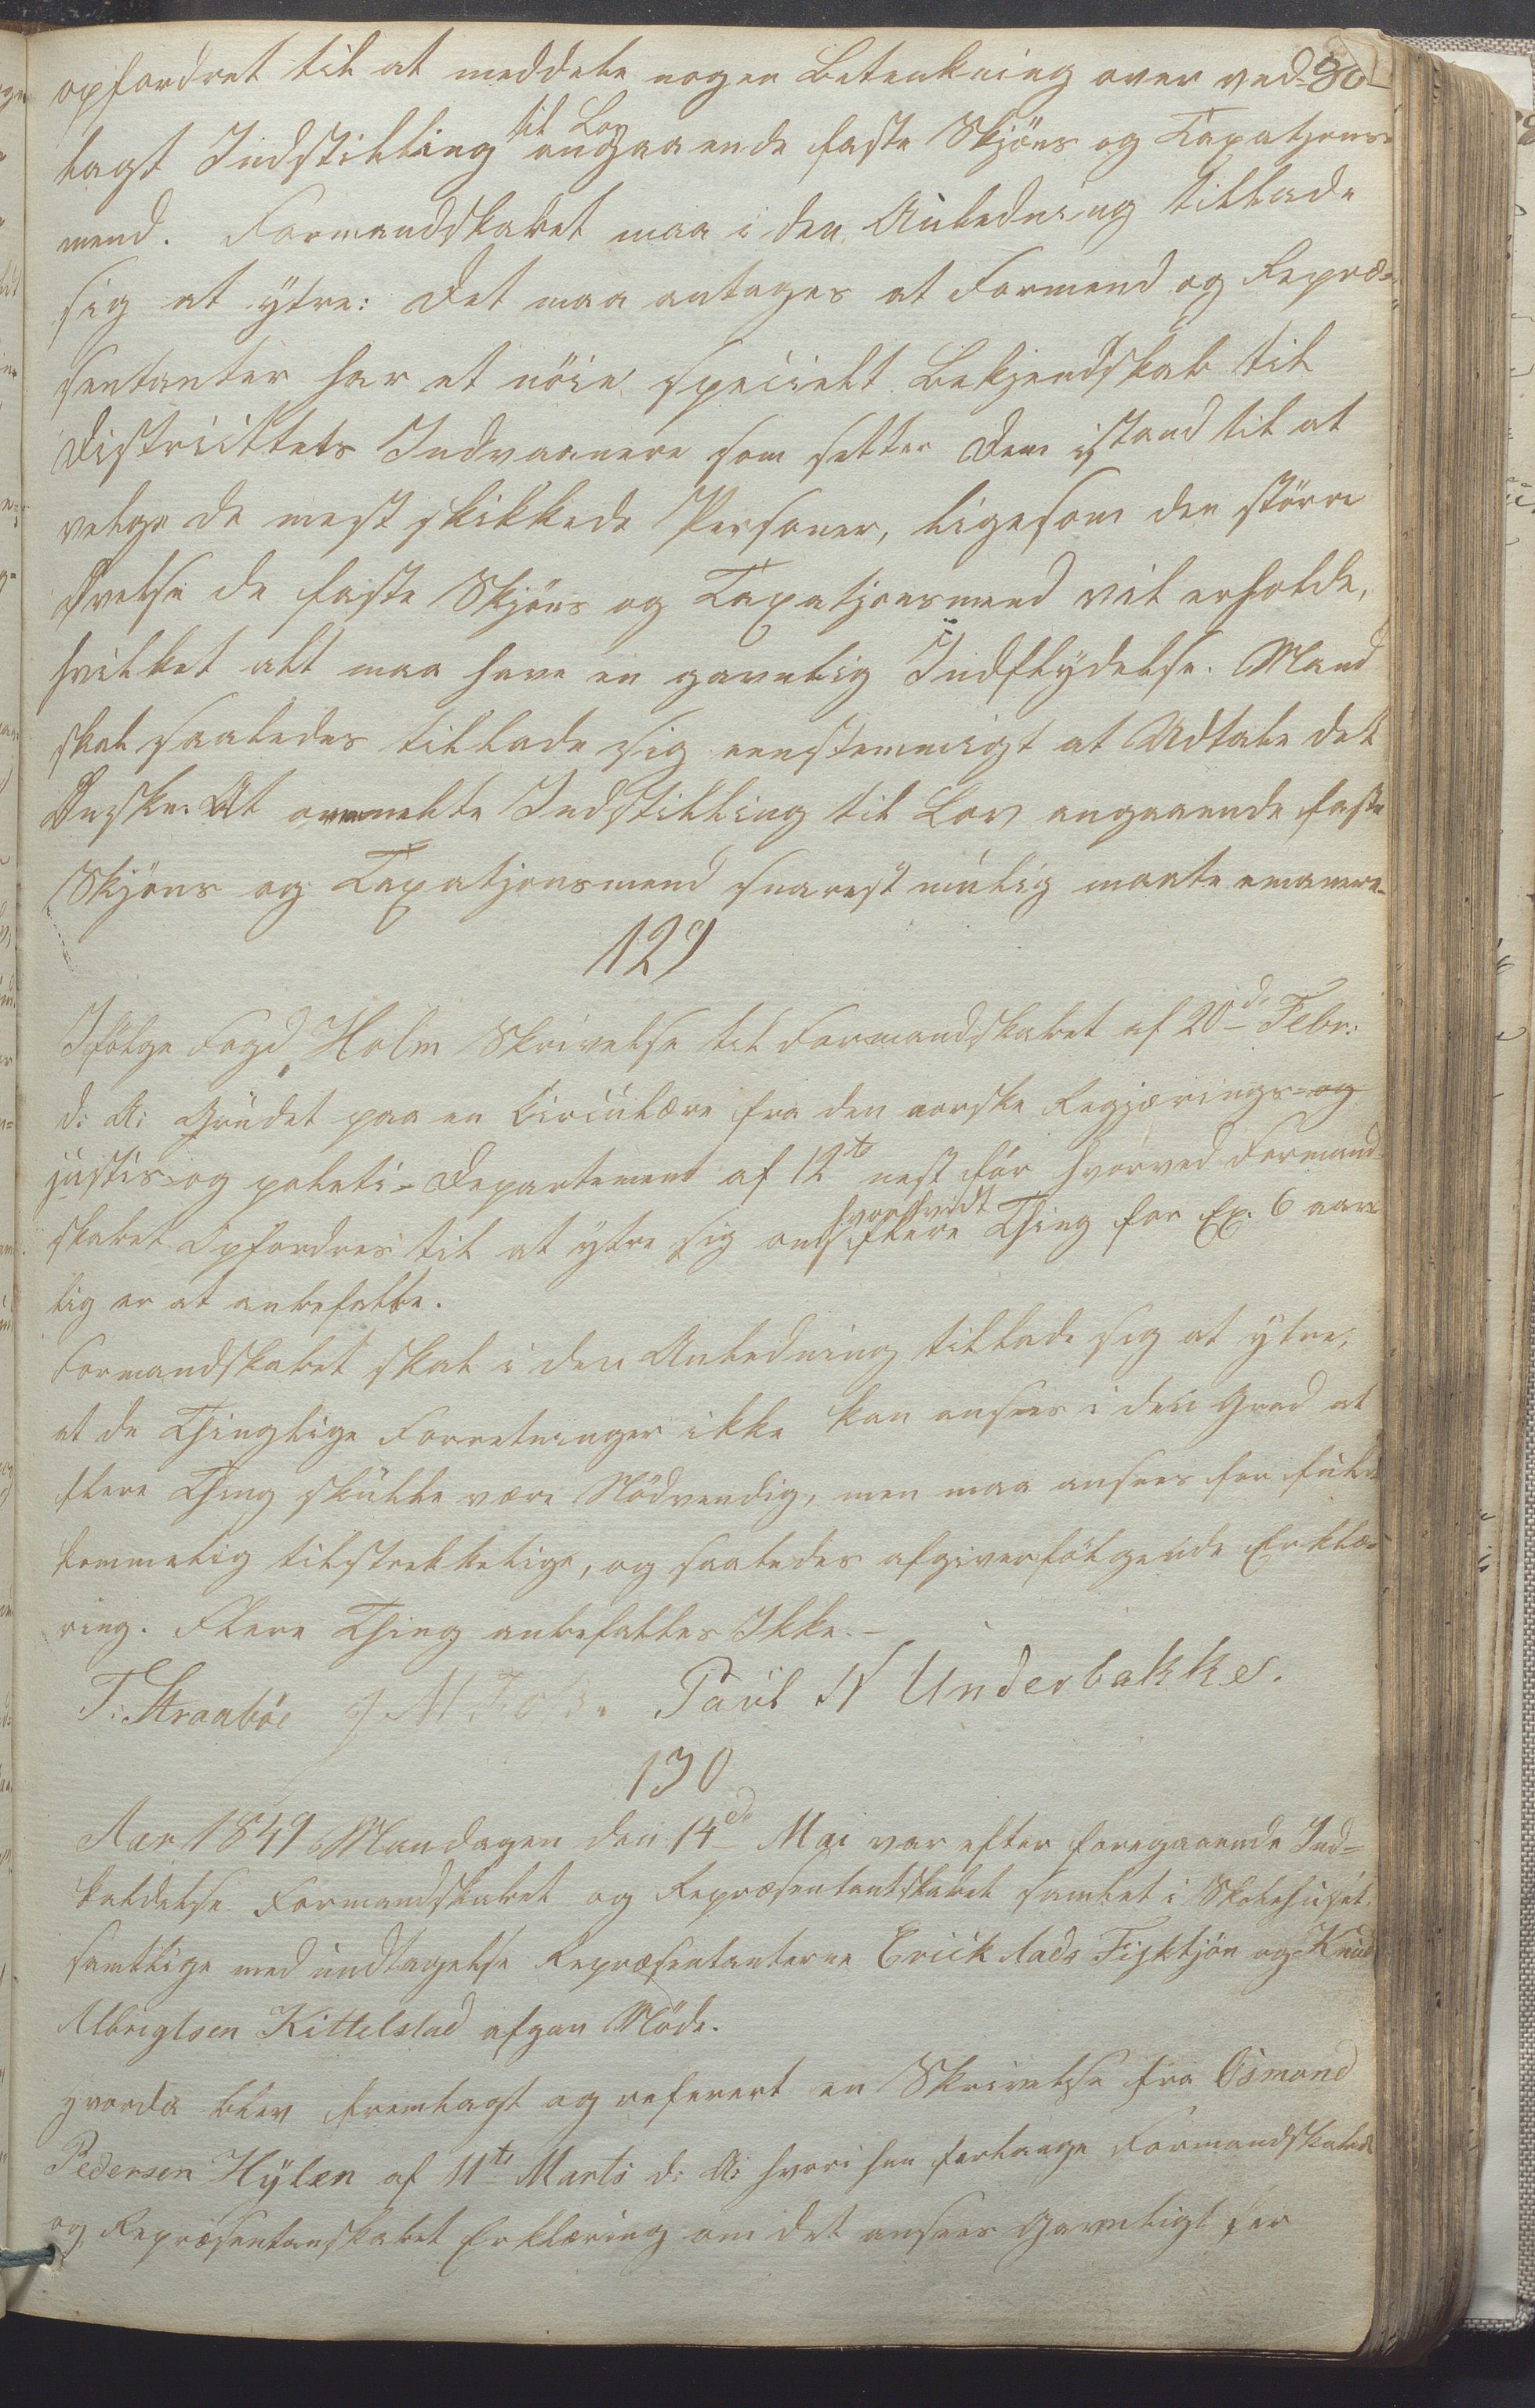 opfordret til at meddele nogen Betenkning over ved- 80
lagt Indstilling til Lov angaaende faste Skjöns og Taxatjons-
mend. Formandskabet maa i den Anledning tillade
sig at ytre: det maa antages at Formend og Repræ-
sentanter har et nöie specielt Bekjendskab til
Districtets Indvaanere som setter dem istand til at
velge de mest skikkede Personer, ligesom den större
Övelse de faste Skjöns og Taxatjonsmend vil erholde,
hvilket alt maa have en gavnlig Indflydelse. Mand
skal saaledes tillade sig eenstemmigt at Udtale det
Önske: At ommelte Indstilling til Lov angaaende faste
Skjöns og Taxatjonsmend snarest mulig maate emanere.
129
Ifölge Fogd Holm Skrivelse til Formandskabet af 20de Febr:
d: A: Grundet paa en Circulære fra den norske Regjærings- og
justis- og politi-Departement af 12te nest för hvorved Formand-
skabet Opfordres til at ytre sig om hvorvidt flere Thing for Ex. 6 aar-
lig er at anbefalle.
Formandskabet skal i den Anledning tillade sig at ytre,
at de Thinglige Forretninger ikke kan ansees i den Grad at
flere Thing skulle være Nödvendig, men maa ansees for fuld-
kommelig tilstrekkelige, og saaledes afgiver fölgende Erklæ-
ring. Flere Thing anbefalles Ikke.-
T: Straaböe J M Foss. Paul N Underbakke.
130
Aar 1849 Mandagen den 14de Mai var efter foregaaende Ind-
kaldelse Formandskabet og Repræsentantskabet samlet i Skolehuset,
samtlige med undtagelse Repræsentanterne Erick Aads Fisktjön og Knud
Albregtsen Kittelslad afgav Möde.
hvorda blev fremlagt og referert en Skrivelse fra Osmond
Pedersen Hylen af 11te Marts d: A: hvori han forlange Formandskabet
og Repræsentanskabet Erklæring om det ansees Gavnligt for